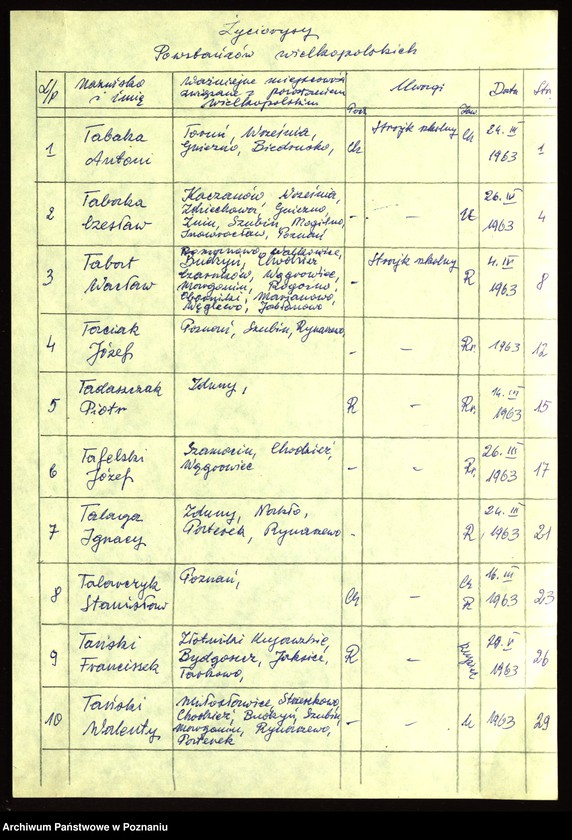 Życiorysy
Powstańców wielkopolskich
L/p Nazwisko i imię Ważniejsze miejscowości związane z powstaniem wielkopolskim Uwagi Data Str.
1 Tabaka Antoni Toruń, Września, Gniezno, Biedrusko, Ch Strajk szkolny Ch 24. III 1963 1
2 Taborka Czesław Kaczanów, Września, Zdziechowa, Gniezno, Żnin, Szubin, Mogilno, Inowrocław, Poznań - - 26. IV 1963 4
3 Tabort Wacław Budzyń, Chodzież Czarnków, Wągrowiec, Margonin, Rogoźno, Marjanowo, Jabłonowo - Strajk szkolny R 4. IV 1963 8
4 Taciak Józef Poznań, Szubin, Rynarzewo - - Rr. 1963 12
5 Tadaszczak Piotr Zduny, R - Rr. 14. III 1963 15
6 Tafelski Józef Szamocin, Chodzież, Wągrowiec - - Rr. 26. III 1963 17
7 Talaga Ignacy Zduny, Nakło, Porterek, Rynarzewo - R. 24. III 1963 21
8 Talarczyk Stanisław Poznań, Ch R 16. III 1963 23
9 Tański Franciszek Złotniki Kujawskie, Bydgoszcz, Jaksice, Tarkowo, R - 29. V 1963 26
10 Tański Walenty Miłosławice, Chodzież, Budzyń, Szubin, Margonin, Rynarzewo, Porterek - - U 1963 29
Archiwum Państwowe w Poznaniu